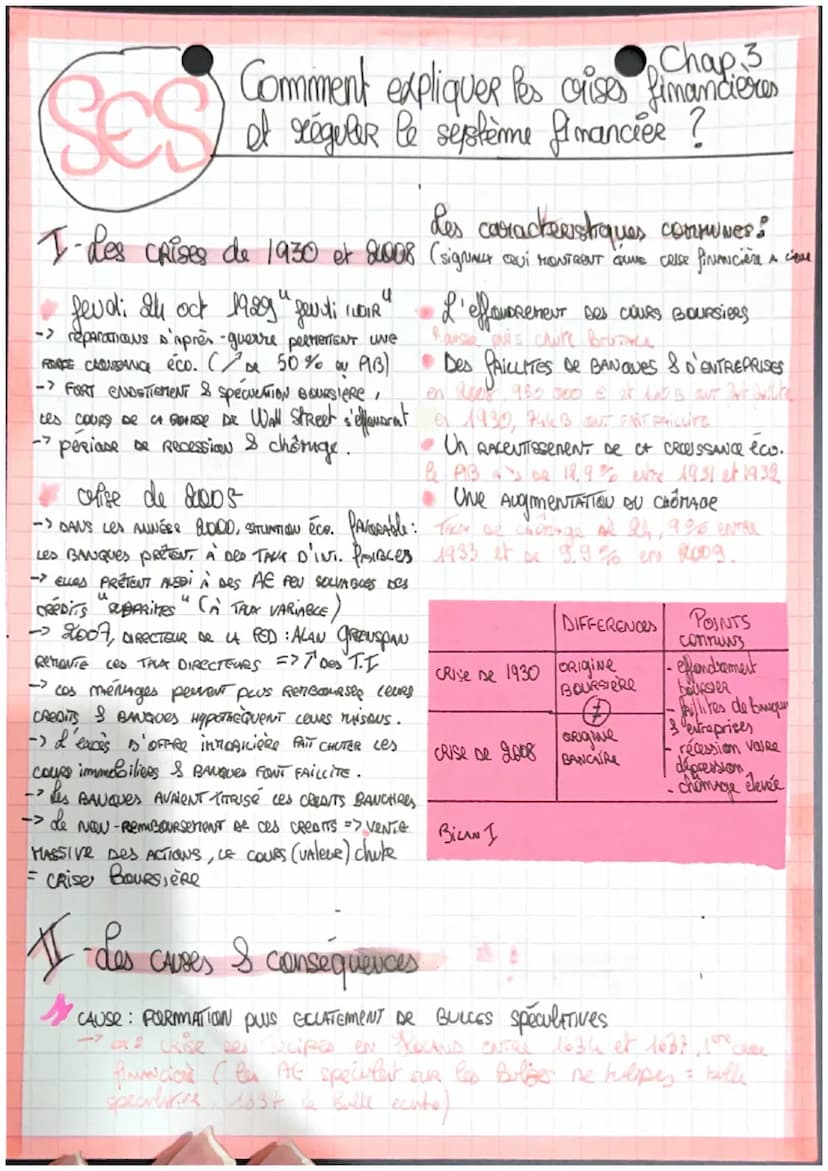 SES
Chap.3
Comment expliquer les crises financières
et réguler le système financier ?
I - Les crises de 1930 et 2008
• Jeudi 24 oct 1929 "jeudi noir"
-> réparations d'après-guerre permettent une
forte croissance éco. (↗ de 50% du PIB)
-> Fort endettement & spéculation boursière,
les cours de la bourse de Wall Street s'effondrent
-> période de recession & chômage.
• crise de 2008
-> Dans les années 2000, situation éco. favorable :
les banques prêtent à des taux d'int. faibles
-> elles prêtent aussi à des AE peu solvables des
crédits "subprimes" (à taux variable)
-> 2007, directeur de la FED : Alan Greenspan
remonte les taux directeurs => ↑ des T.I
-> les ménages peuvent plus rembourser leurs
crédits & banques hypothèquent leurs maisons.
-> L'excès d'offre immobilière fait chuter les
cours immobiliers & banques font faillite.
-> Les banques avaient titrisé les crédits bancaires
-> Le non-remboursement de ces crédits => vente
massive des actions, le cours (valeur) chute
= crise boursière
Les caractéristiques communes :
(signaux qui montrent qu'une crise financière a lieu
• L'effondrement des cours boursiers
Hausse puis chute brutale
• Des faillites de banques & d'entreprises
en 2008, 950 000 E et 140 B ont fait faillite
en 1930, 744 B ont fait faillite
• Un ralentissement de la croissance éco.
le PIB a ↘ de 12,9% entre 1931 et 1932
• Une augmentation du chômage
Taux de chômage de 24,9% entre
1933 et de 9.9% en 2009.
DIFFERENCES
Points communs
crise de 1930
origine boursière
≠
crise de 2008
origine bancaire
- effondrement
boursier
- faillites de banques
& entreprises
- récession voire
dépression
- chômage élevée
Bilan I
II - Les causes & conséquences
CAUSE : FORMATION puis ECLATEMENT DE BULLES spéculatives
-> ex : crise des tulipes en Hollande entre 1634 et 1637, 1ère crise
financière (les AE spéculent sur les bulbes de tulipes = bulle
spéculative, 1637 la bulle éclate)